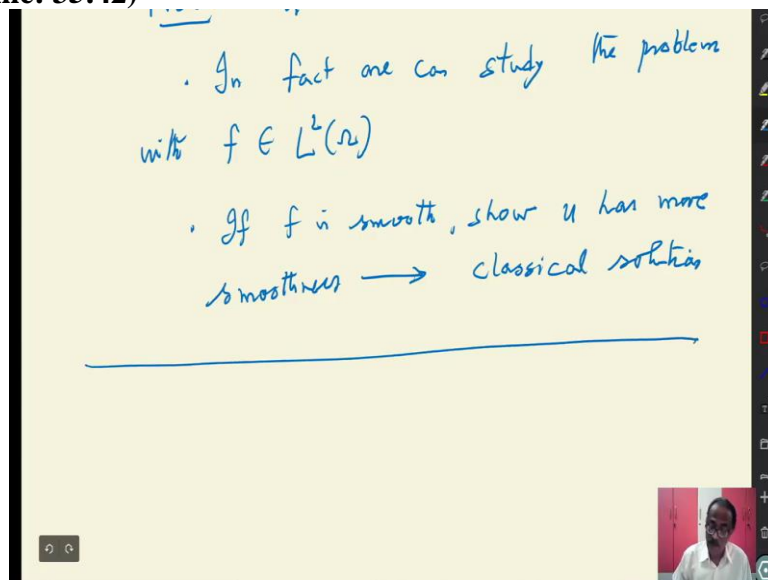 33:42)
· In fact one can study the problem
with f ∈ L²(Ω)
· If f is smooth, show u has more
smoothness ⟶ classical solution